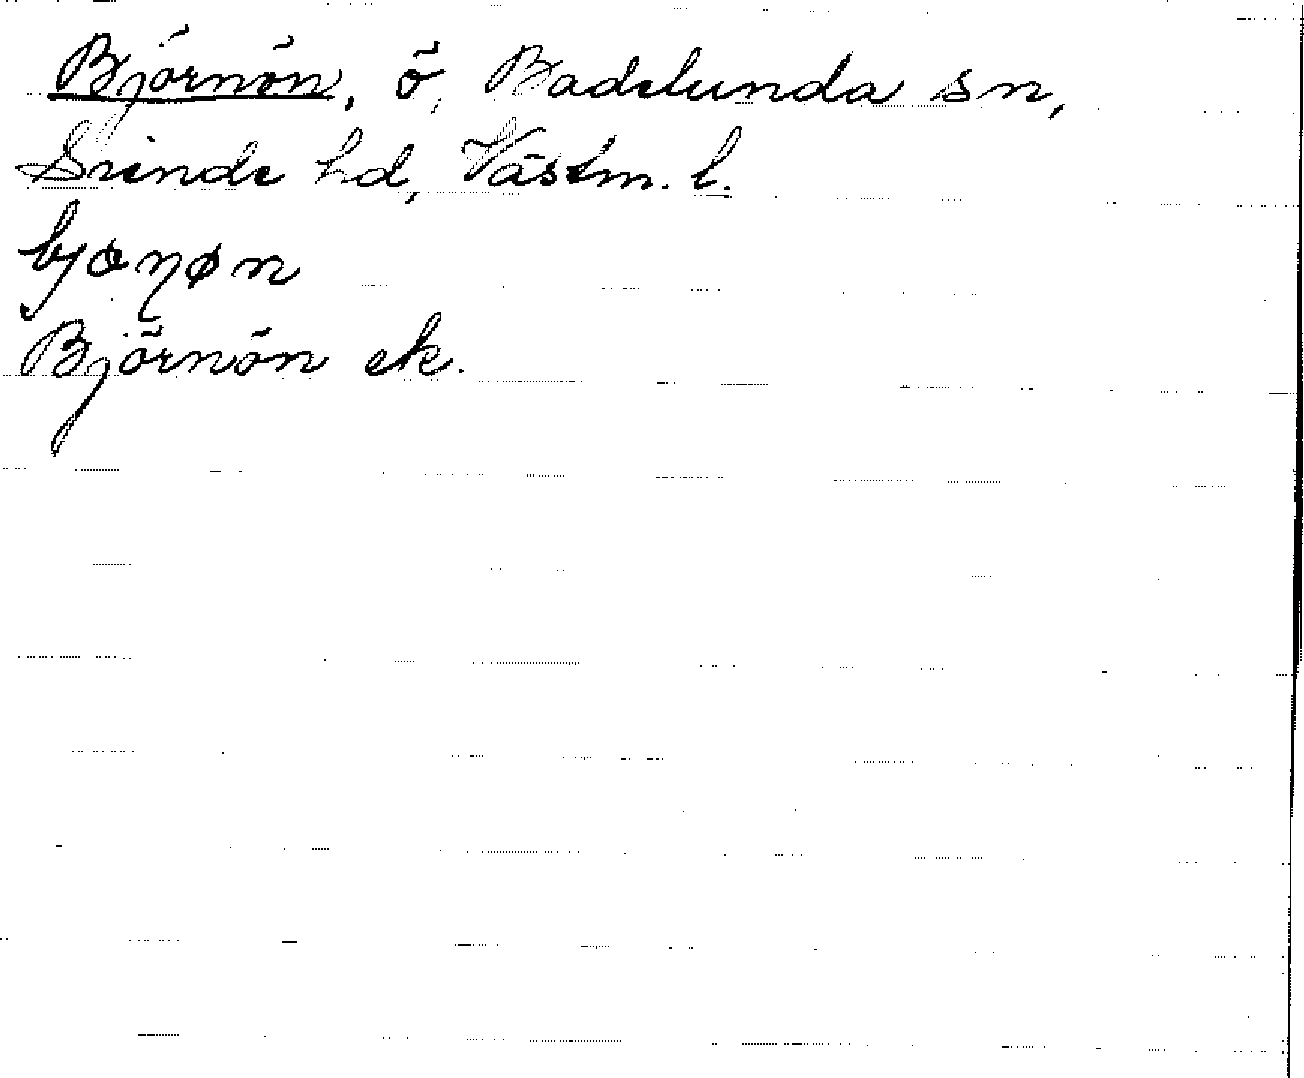 Björnön, ö, Badelunda sn,
Siende hd, Västm. l.
bjɷɳøn
Björnön ek.